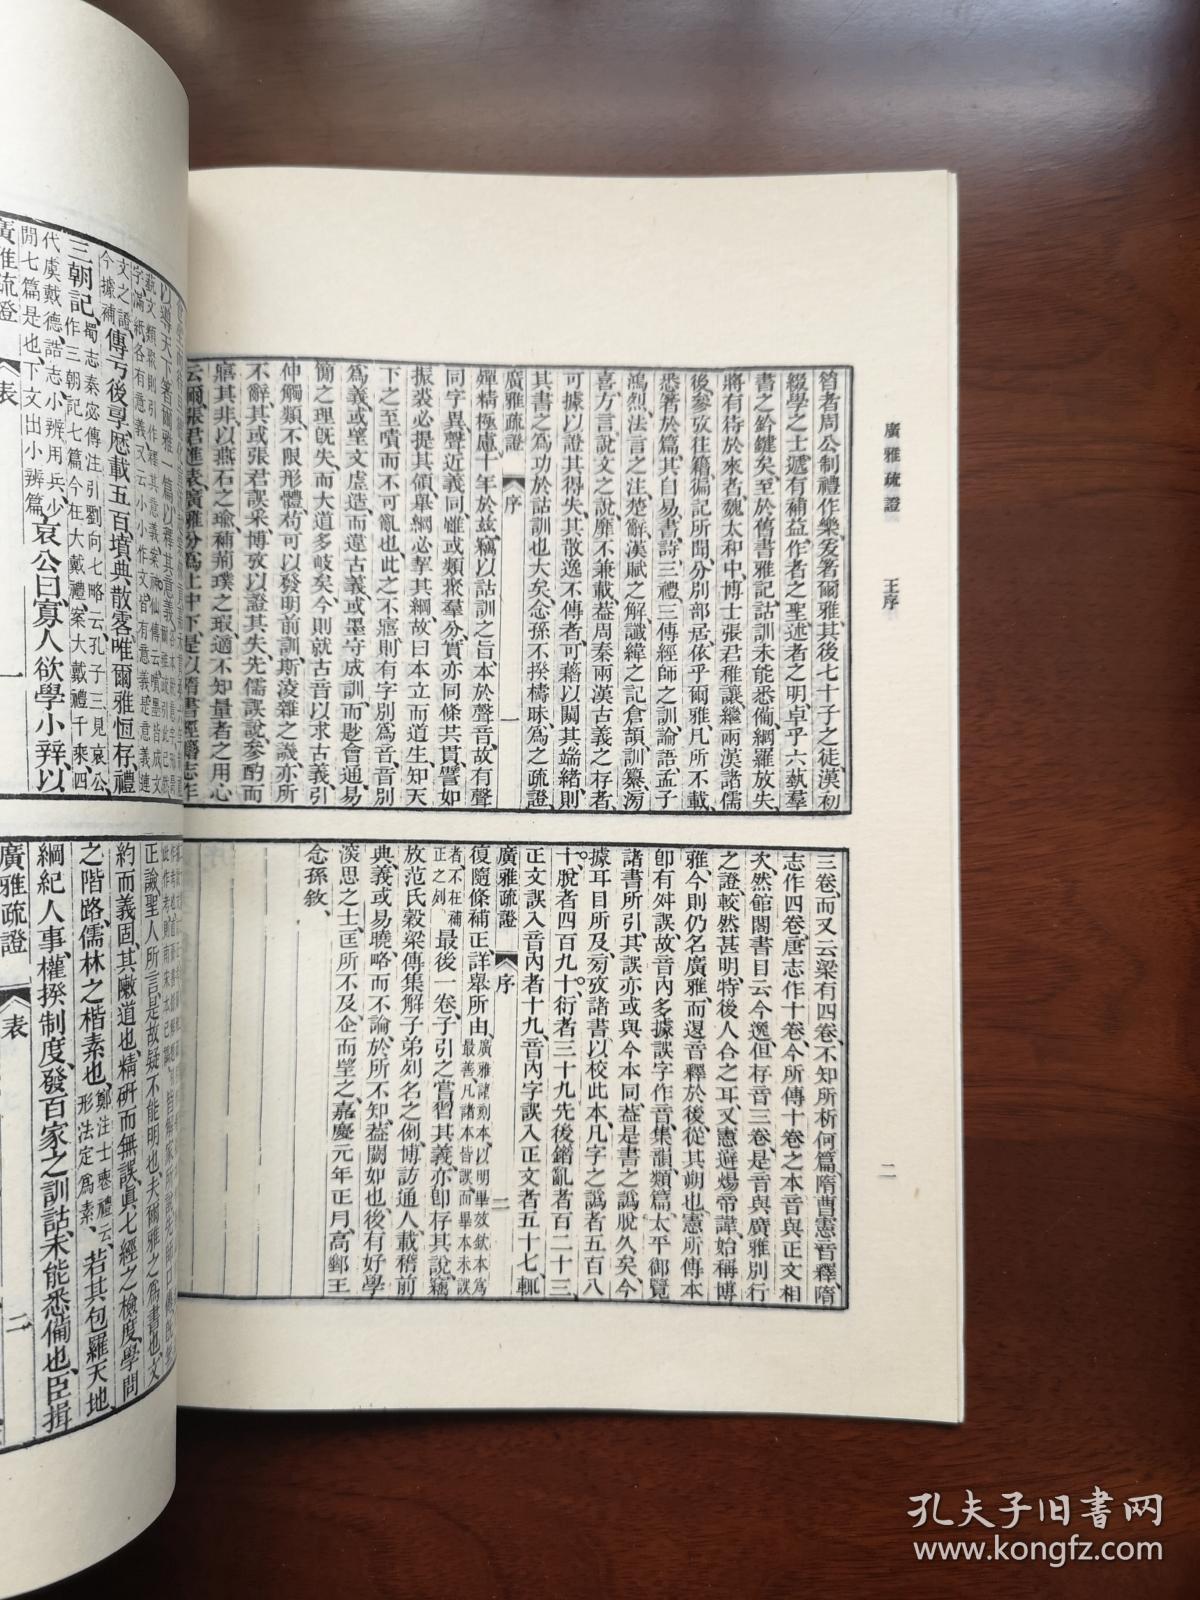 廣雅疏證　王序
昔者周公制禮作樂爰著爾雅其後七十子之徒漢初
綴學之士遞有補益作者之聖述者之明卓乎六埶羣
書之鈐鍵矣至於舊書雅記詁訓未能悉備網羅放失
將有待於來者魏太和中博士張君稚讓繼兩漢諸儒
後參攷往籍徧記所聞分別部居依乎爾雅凡所不載
悉箸於篇其自易書詩三禮三傳經師之訓論語孟子
鴻烈法言之注楚辭漢賦之解讖緯之記倉頡訓纂滂
喜方言說文之說靡不兼載葢周秦兩漢古義之存者
可據以證其得失其散逸不傳者可藉以闚其端緒則
其書之爲功於詁訓也大矣念孫不揆檮昧爲之疏證
廣雅疏證　序　一
殫精極慮十年於茲竊以詁訓之旨本於聲音故有聲
同字異聲近義同雖或類聚羣分實亦同條共貫譬如
振裘必提其領舉綱必挈其綱故曰本立而道生知天
下之至嘖而不可亂也此之不寤則有字別爲音音別
爲義或望文虛造而違古義或墨守成訓而尟會通易
簡之理旣失而大道多岐矣今則就古音以求古義引
伸觸類不限形體苟可以發明前訓斯淩雜之譏亦所
不辭其或張君誤采博攷以證其失先儒誤說參酌而
寤其非以燕石之瑜補荊璞之瑕適不知量者之用心
云爾張君進表廣雅分爲上中下是以隋書經籍志作
三卷而又云梁有四卷不知所析何篇隋曹憲音釋隋
志作四卷唐志作十卷今所傳十卷之本音與正文相
次然館閣書目云今逸但存音三卷是音與廣雅別行
之證較然甚明特後人合之耳又憲避煬帝諱始稱博
雅今則仍名廣雅而退音釋於後從其朔也憲所傳本
卽有舛誤故音內多據誤字作音集韻類篇太平御覽
諸書所引其誤亦或與今本同葢是書之譌脫久矣今
據耳目所及旁攷諸書以校此本凡字之譌者五百八
十脫者四百九十衍者三十九先後錯亂者百二十三
正文誤入音內者十九音內字誤入正文者五十七輒
廣雅疏證　序　二
復隨條補正詳舉所由廣雅諸刻本以明畢效欽本爲
最善凡諸本皆誤而畢本未誤
者不在補
正之列最後一卷子引之嘗習其義亦卽存其說竊
放范氏穀梁傳集解子弟列名之例博訪通人載稽前
典義或易曉略而不論於所不知葢闕如也後有好學
淡思之士匡所不及企而望之嘉慶元年正月高郵王
念孫敘
二
文之證
今據補傳亏後孠歷載五百墳典散零唯爾雅恆存禮
三朝記蜀志秦宓傳注引劉向七略云孔子三見哀公
作三朝記七篇今在大戴禮案大戴禮千乘四
代虞戴德誥志小辨用兵少
閒七篇是也下文出小辨篇哀公曰寡人欲學小辨以
廣雅疏證　表　一
正論聖人所言是故疑不能明也夫爾雅之爲書也文
約而義固其敶道也精硏而無誤眞七經之檢度學問
之階路儒林之楷素也鄭注士喪禮云
形法定爲素若其包羅天地
綱紀人事權揆制度發百家之訓詁未能悉備也臣揖
廣雅疏證　表　二
孔夫子旧书网
www.kongfz.com